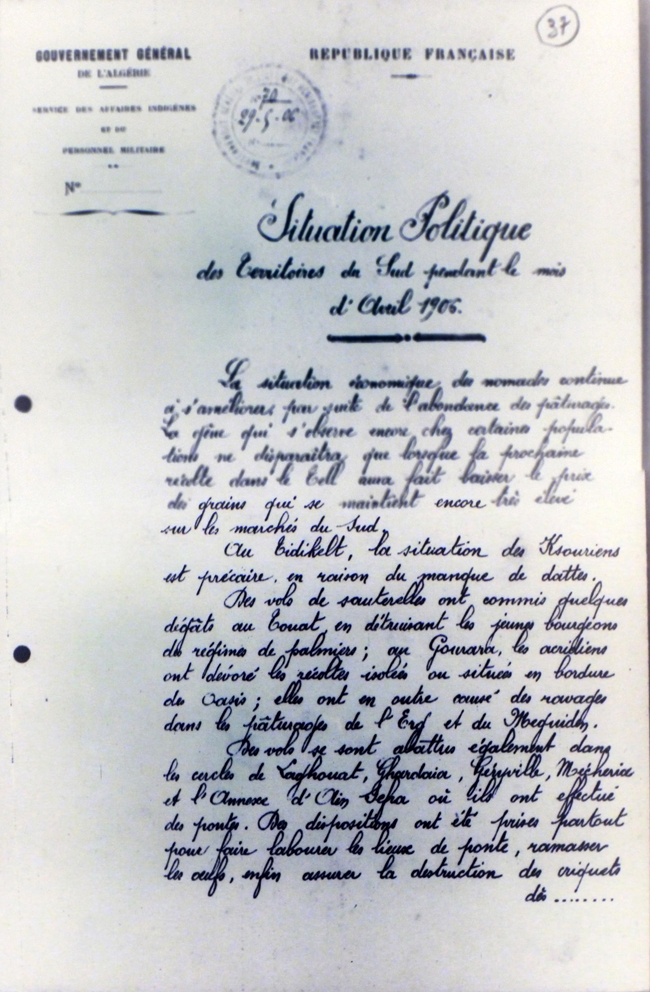 37
GOUVERNEMENT GÉNÉRAL
DE L'ALGÉRIE
SERVICE DES AFFAIRES INDIGÈNES
ET DU
PERSONNEL MILITAIRE
N°
REPUBLIQUE FRANÇAISE
70
29-5-06
Situation Politique
des Territoires du Sud pendant le mois
d'Avril 1906.
La situation économique des nomades continue
à s'améliorer, par suite de l'abondance des pâturages.
La gêne qui s'observe encore chez certaines popula-
tions ne disparaîtra que lorsque la prochaine
récolte dans le Tell aura fait baisser le prix
des grains qui se maintient encore très élevé
sur les marchés du Sud.
Au Tidikelt, la situation des Ksouriens
est précaire, en raison du manque de dattes.
Des vols de sauterelles ont commis quelques
dégâts au Touat, en détruisant les jeunes bourgeons
des régimes de palmiers ; au Gourara, les acridiens
ont dévoré les récoltes isolées ou situées en bordure
des Oasis ; elles ont en outre causé des ravages
dans les pâturages de l'Erg et du Meguiden.
Des vols se sont abattus également dans
les cercles de Laghouat, Ghardaïa, Géryville, Mécheria
et l'Annexe d'Aïn Sefra où ils ont effectué
des pontes. Des dispositions ont été prises partout
pour faire labourer les lieux de ponte, ramasser
les œufs, enfin assurer la destruction des criquets
dès ........